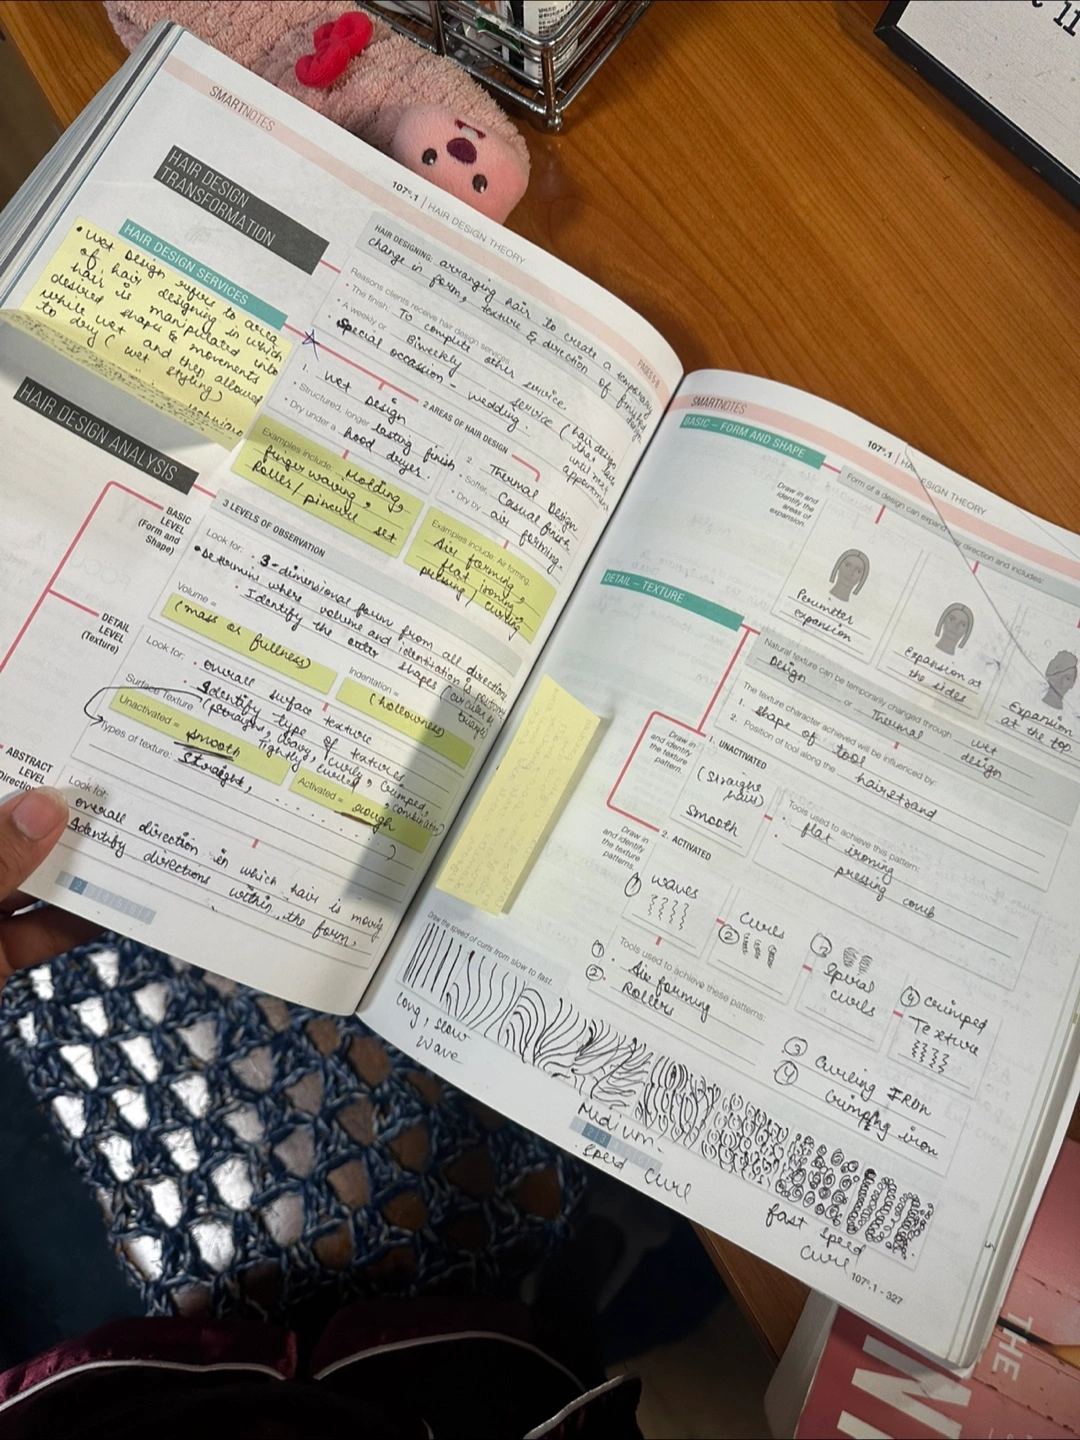 SMARTNOTES
107°.1 | HAIR DESIGN THEORY
HAIR DESIGN
TRANSFORMATION
HAIR DESIGN SERVICES
• Wet Design refers to area
of hair designing in which
hair is manipulated into
desired shape & movements
while wet and then allowed
to dry ( wet
styling)
HAIR DESIGNING: arranging hair to create a temporary
change in form, texture & direction of finished
design.
PAGES 5-9
Reasons clients receive hair design services
• The finish To compute other service.
• A weekly or Biweekly service (hair design
that last
until next
appointment
• Special occassion - wedding.
2 AREAS OF HAIR DESIGN
1. Wet Design
• Structured, longer lasting finish
• Dry under a hood dryer.
Examples include: Molding,
finger waving,
Roller/ pincurl set
2. Thermal Design
• Softer, Casual finish
• Dry by air forming.
Examples include: Air forming,
Air forming,
flat ironing,
pressing / curling
HAIR DESIGN ANALYSIS
3 LEVELS OF OBSERVATION
BASIC
LEVEL
(Form and
Shape)
Look for: • 3-dimensional form from all directions
• Determine where volume and identitation is positioned
• Identify the outer shapes (circular,
Volume =
(mass or fullness)
Indentation =
(hollowness)
DETAIL
LEVEL
(Texture)
Look for: • overall surface texture
• Identify type of textures
(straight, wavy, curly, crimped,
tightly curled, combination)
Surface Texture
Unactivated = smooth
Activated = rough
Types of texture: Straight,
ABSTRACT
LEVEL
Look for:
overall direction in which hair is moving
Identify directions within the form,
SMARTNOTES
107°.1 | HAIR DESIGN THEORY
BASIC – FORM AND SHAPE
Form of a design can expand any direction and includes:
Draw in and
identify the
areas of
expansion.
Perimeter
expansion
Expansion at
the sides
Expansion
at the top
DETAIL – TEXTURE
Natural texture can be temporarily changed through wet
Design or Thermal design
The texture character achieved will be influenced by:
1. shape of tool
2. Position of tool along the hairstrand
Draw in
and identify
the texture
pattern.
1. UNACTIVATED
(straight
hair)
smooth
Tools used to achieve this pattern:
• flat ironing
• pressing comb
Draw in
and identify
the texture
patterns.
2. ACTIVATED
① waves
② Curls
③ Spiral
curls
④ crimped
Texture
Tools used to achieve these patterns:
① • Air forming
② • Rollers
③ Curling IRON
④ crimping iron
Draw the speed of curls from slow to fast.
long, slow
wave
Midium
speed curl
fast
speed
curl
107°.1 - 327
THE